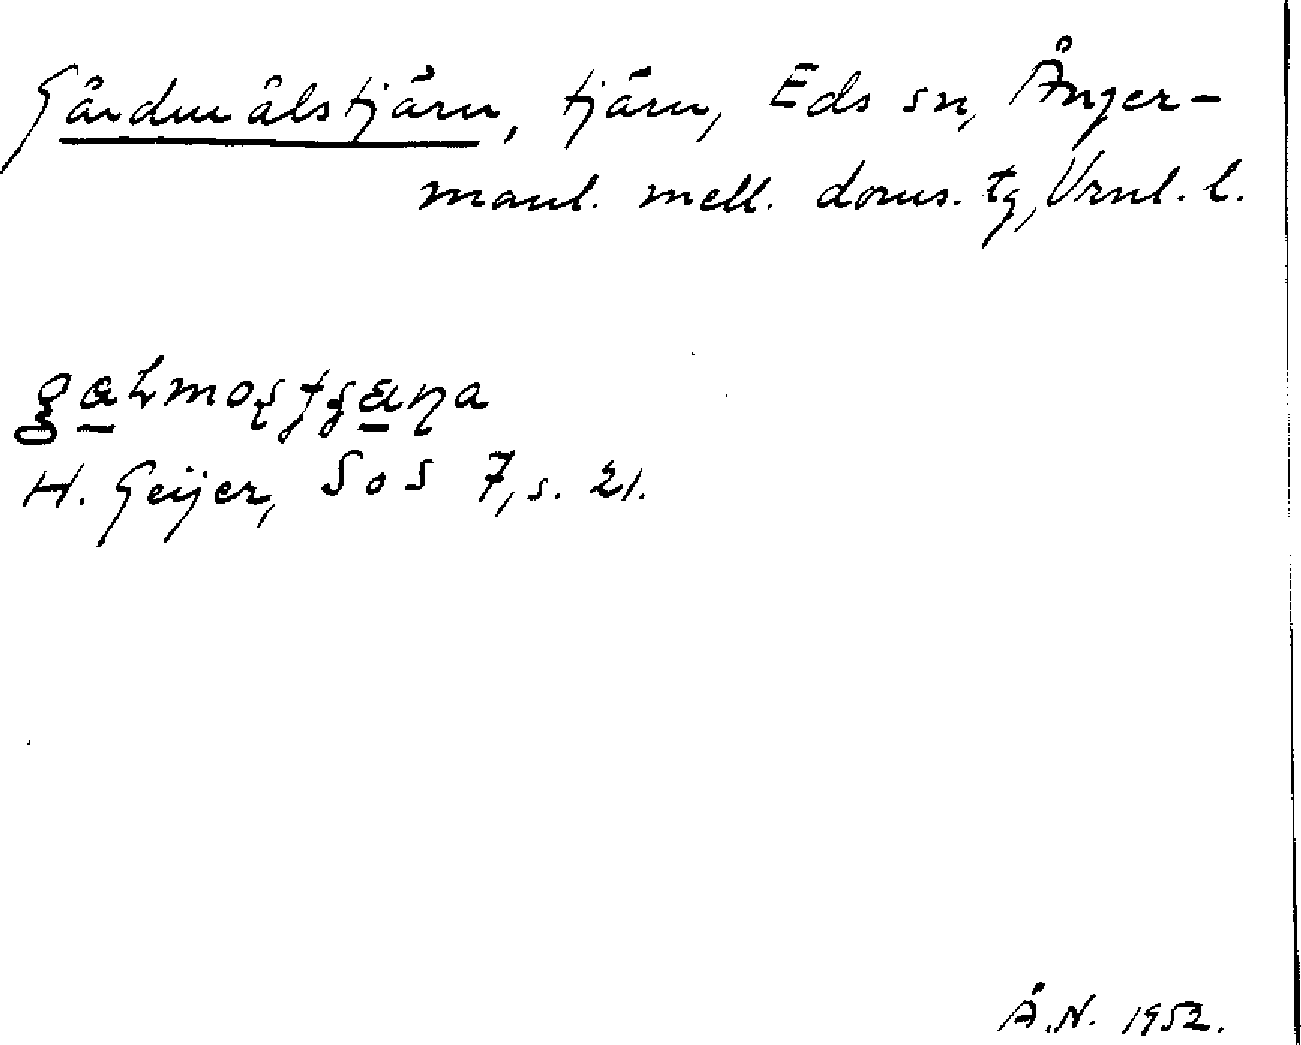 Gårdmålstjärn, tjärn, Eds sn, Ånger-
manl. mell. doms. tg, Vrnl. l.
H. Geijer, SoS 7, s. 21.
Å.N. 1952.